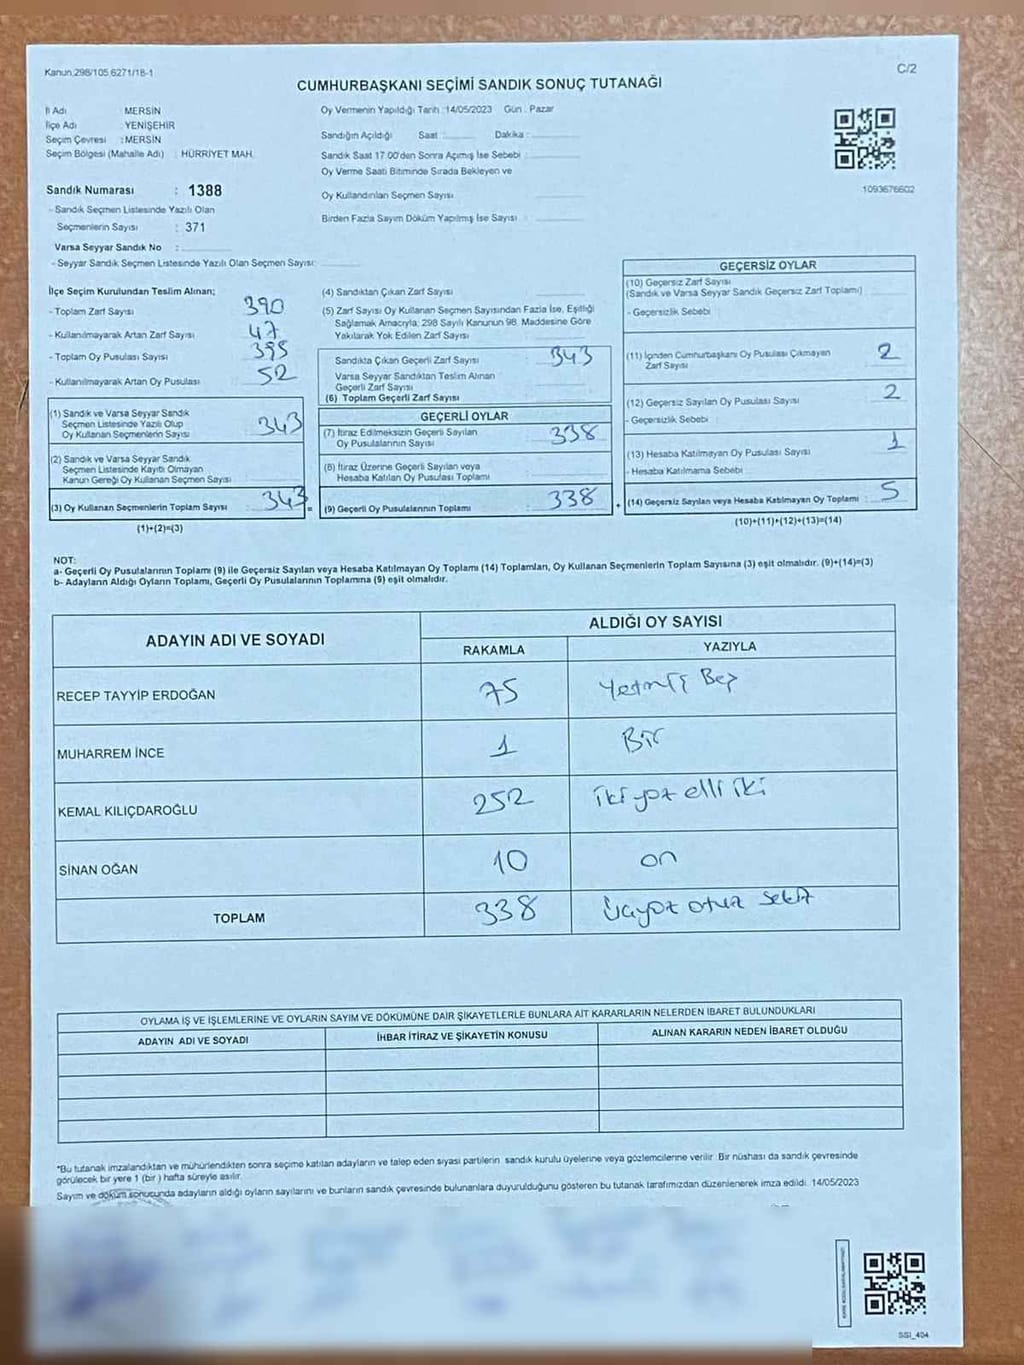 Kanun,298/105,6271/18-1
C/2
CUMHURBAŞKANI SEÇİMİ SANDIK SONUÇ TUTANAĞI
İl Adı : MERSİN
İlçe Adı : YENİŞEHİR
Seçim Çevresi : MERSİN
Seçim Bölgesi (Mahalle Adı) : HÜRRİYET MAH.
Sandık Numarası : 1388
- Sandık Seçmen Listesinde Yazılı Olan
Seçmenlerin Sayısı : 371
Varsa Seyyar Sandık No :
- Seyyar Sandık Seçmen Listesinde Yazılı Olan Seçmen Sayısı:
Oy Vermenin Yapıldığı Tarih :14/05/2023 Gün : Pazar
Sandığın Açıldığı Saat : Dakika :
Sandık Saat 17:00'den Sonra Açımış İse Sebebi :
Oy Verme Saati Bitiminde Sırada Bekleyen ve
Oy Kullandırılan Seçmen Sayısı
Birden Fazla Sayım Döküm Yapılmış İse Sayısı :
1093676602
İlçe Seçim Kurulundan Teslim Alınan;
- Toplam Zarf Sayısı : 390
- Kullanılmayarak Artan Zarf Sayısı : 47
- Toplam Oy Pusulası Sayısı : 395
- Kullanılmayarak Artan Oy Pusulası : 52
(1) Sandık ve Varsa Seyyar Sandık
Seçmen Listesinde Yazılı Olup
Oy Kullanan Seçmenlerin Sayısı : 343
(2) Sandık ve Varsa Seyyar Sandık
Seçmen Listesinde Kayıtlı Olmayan
Kanun Gereği Oy Kullanan Seçmen Sayısı :
(3) Oy Kullanan Seçmenlerin Toplam Sayısı : 343 =
(1)+(2)=(3)
(4) Sandıktan Çıkan Zarf Sayısı :
(5) Zarf Sayısı Oy Kullanan Seçmen Sayısından Fazla İse, Eşitliği
Sağlamak Amacıyla; 298 Sayılı Kanunun 98. Maddesine Göre
Yakılarak Yok Edilen Zarf Sayısı :
Sandıkta Çıkan Geçerli Zarf Sayısı : 343
Varsa Seyyar Sandıktan Teslim Alınan
Geçerli Zarf Sayısı :
(6) Toplam Geçerli Zarf Sayısı
GEÇERLİ OYLAR
(7) İtiraz Edilmeksizin Geçerli Sayılan
Oy Pusulalarının Sayısı : 338
(8) İtiraz Üzerine Geçerli Sayılan veya
Hesaba Katılan Oy Pusulası Toplamı :
(9) Geçerli Oy Pusulalarının Toplamı : 338 +
GEÇERSİZ OYLAR
(10) Geçersiz Zarf Sayısı
(Sandık ve Varsa Seyyar Sandık Geçersiz Zarf Toplamı) :
- Geçersizlik Sebebi :
(11) İçinden Cumhurbaşkanı Oy Pusulası Çıkmayan
Zarf Sayısı : 2
(12) Geçersiz Sayılan Oy Pusulası Sayısı : 2
- Geçersizlik Sebebi :
(13) Hesaba Katılmayan Oy Pusulası Sayısı : 1
- Hesaba Katılmama Sebebi :
(14) Geçersiz Sayılan veya Hesaba Katılmayan Oy Toplamı : 5
(10)+(11)+(12)+(13)=(14)
NOT:
a- Geçerli Oy Pusulalarının Toplamı (9) ile Geçersiz Sayılan veya Hesaba Katılmayan Oy Toplamı (14) Toplamları, Oy Kullanan Seçmenlerin Toplam Sayısına (3) eşit olmalıdır. (9)+(14)=(3)
b- Adayların Aldığı Oyların Toplamı, Geçerli Oy Pusulalarının Toplamına (9) eşit olmalıdır.
ADAYIN ADI VE SOYADI
ALDIĞI OY SAYISI
RAKAMLA YAZIYLA
RECEP TAYYİP ERDOĞAN 75 Yetmiş Beş
MUHARREM İNCE 1 Bir
KEMAL KILIÇDAROĞLU 252 iki yüz elli iki
SİNAN OĞAN 10 on
TOPLAM 338 Üçyüz otuz sekiz
OYLAMA İŞ VE İŞLEMLERİNE VE OYLARIN SAYIM VE DÖKÜMÜNE DAİR ŞİKAYETLERLE BUNLARA AİT KARARLARIN NELERDEN İBARET BULUNDUKLARI
ADAYIN ADI VE SOYADI İHBAR İTİRAZ VE ŞİKAYETİN KONUSU ALINAN KARARIN NEDEN İBARET OLDUĞU
*Bu tutanak imzalandıktan ve mühürlendikten sonra seçime katılan adayların ve talep eden siyasi partilerin sandık kurulu üyelerine veya gözlemcilerine verilir. Bir nüshası da sandık çevresinde
görülecek bir yere 1 (bir ) hafta süreyle asılır.
Sayım ve döküm sonucunda adayların aldığı oyların sayılarını ve bunların sandık çevresinde bulunanlara duyurulduğunu gösteren bu tutanak tarafımızdan düzenlenerek imza edildi. 14/05/2023
SSI_404